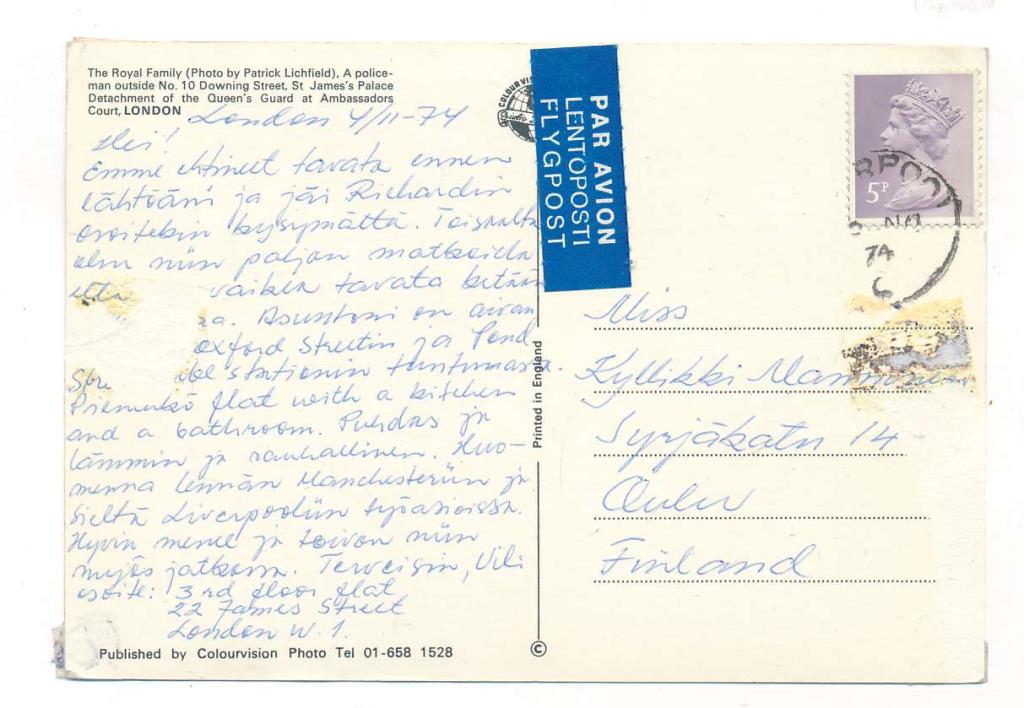 The Royal Family (Photo by Patrick Lichfield), A police-
man outside No. 10 Downing Street, St James's Palace
Detachment of the Queen's Guard at Ambassadors
Court, LONDON
London 4/11-74
Hei!
Emme ehtineet tavata ennen
lähtöäni ja jäi Richardin
osoitekin kysymättä. Toisaalta
olen niin paljon matkoilla
että vaikea tavata ketään
Asuntoni on aivan
Oxford Streetin ja Bond
Stre stationin tuntumassa.
Pienenkö flat with a kitchen
and a bathroom. Puhdas ja
lämmin ja rauhallinen. Huo-
menna lennän Manchesteriin ja
sieltä Liverpooliin työasioissa.
Hyvin menee ja toivon niin
myös jatkossa. Terveisin, Vili
osoite: 3rd floor flat
22 James Street
London W.1.
Published by Colourvision Photo Tel 01-658 1528
Printed in England
©
PAR AVION
LENTOPOSTI
FLYGPOST
5P
74
6
Miss
Kyllikki
Syrjäkatu 14
Oulu
Finland